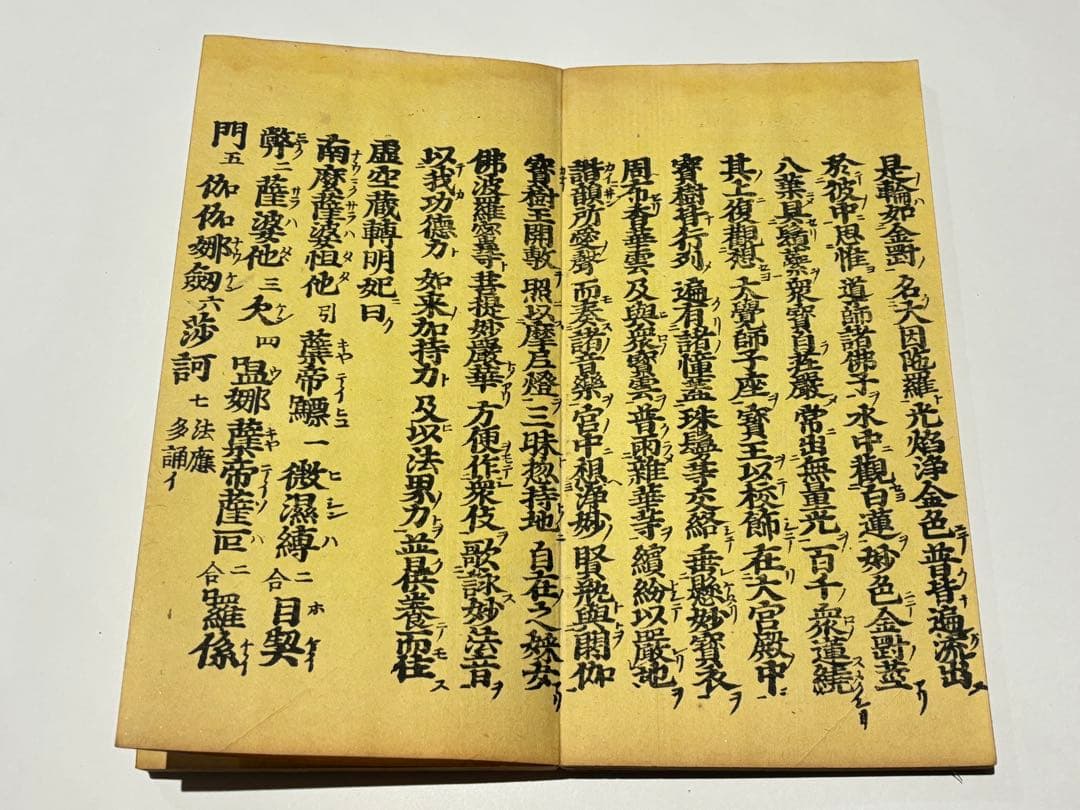 是輪如金剛 名大因陀羅 光焰淨金色 普皆遍流出
於彼中思惟 道師諸佛子 水中觀白蓮 妙色金剛莖
八葉具鬚蘂 衆寶自莊嚴 常出無量光 百千衆蓮繞
其上復觀想 大覺師子座 寶王以校飾 在大宮殿中
寶樹皆行列 遍有諸幢蓋 珠鬘等交絡 垂懸妙寶衣
周布香華雲 及與衆寶雲 普雨雜華等 繽紛以嚴地
諧韻所愛聲 而奏諸音樂 宮中想淨妙 賢瓶與閼伽
寶樹王開敷 照以摩尼燈 三昧惣持地 自在之婇女
佛波羅蜜等 菩提妙嚴華 方便作衆伎 歌詠妙法音
以我功德力 如来加持力 及以法界力 並供養而住
虚空蔵轉明妃曰
南麼薩婆怛他引 蘗帝驃一 微濕縛二合目契
弊二薩婆他三欠四嗢娜蘗帝薩叵二合羅係
門五伽伽娜劔六莎訶七 法應多誦イ